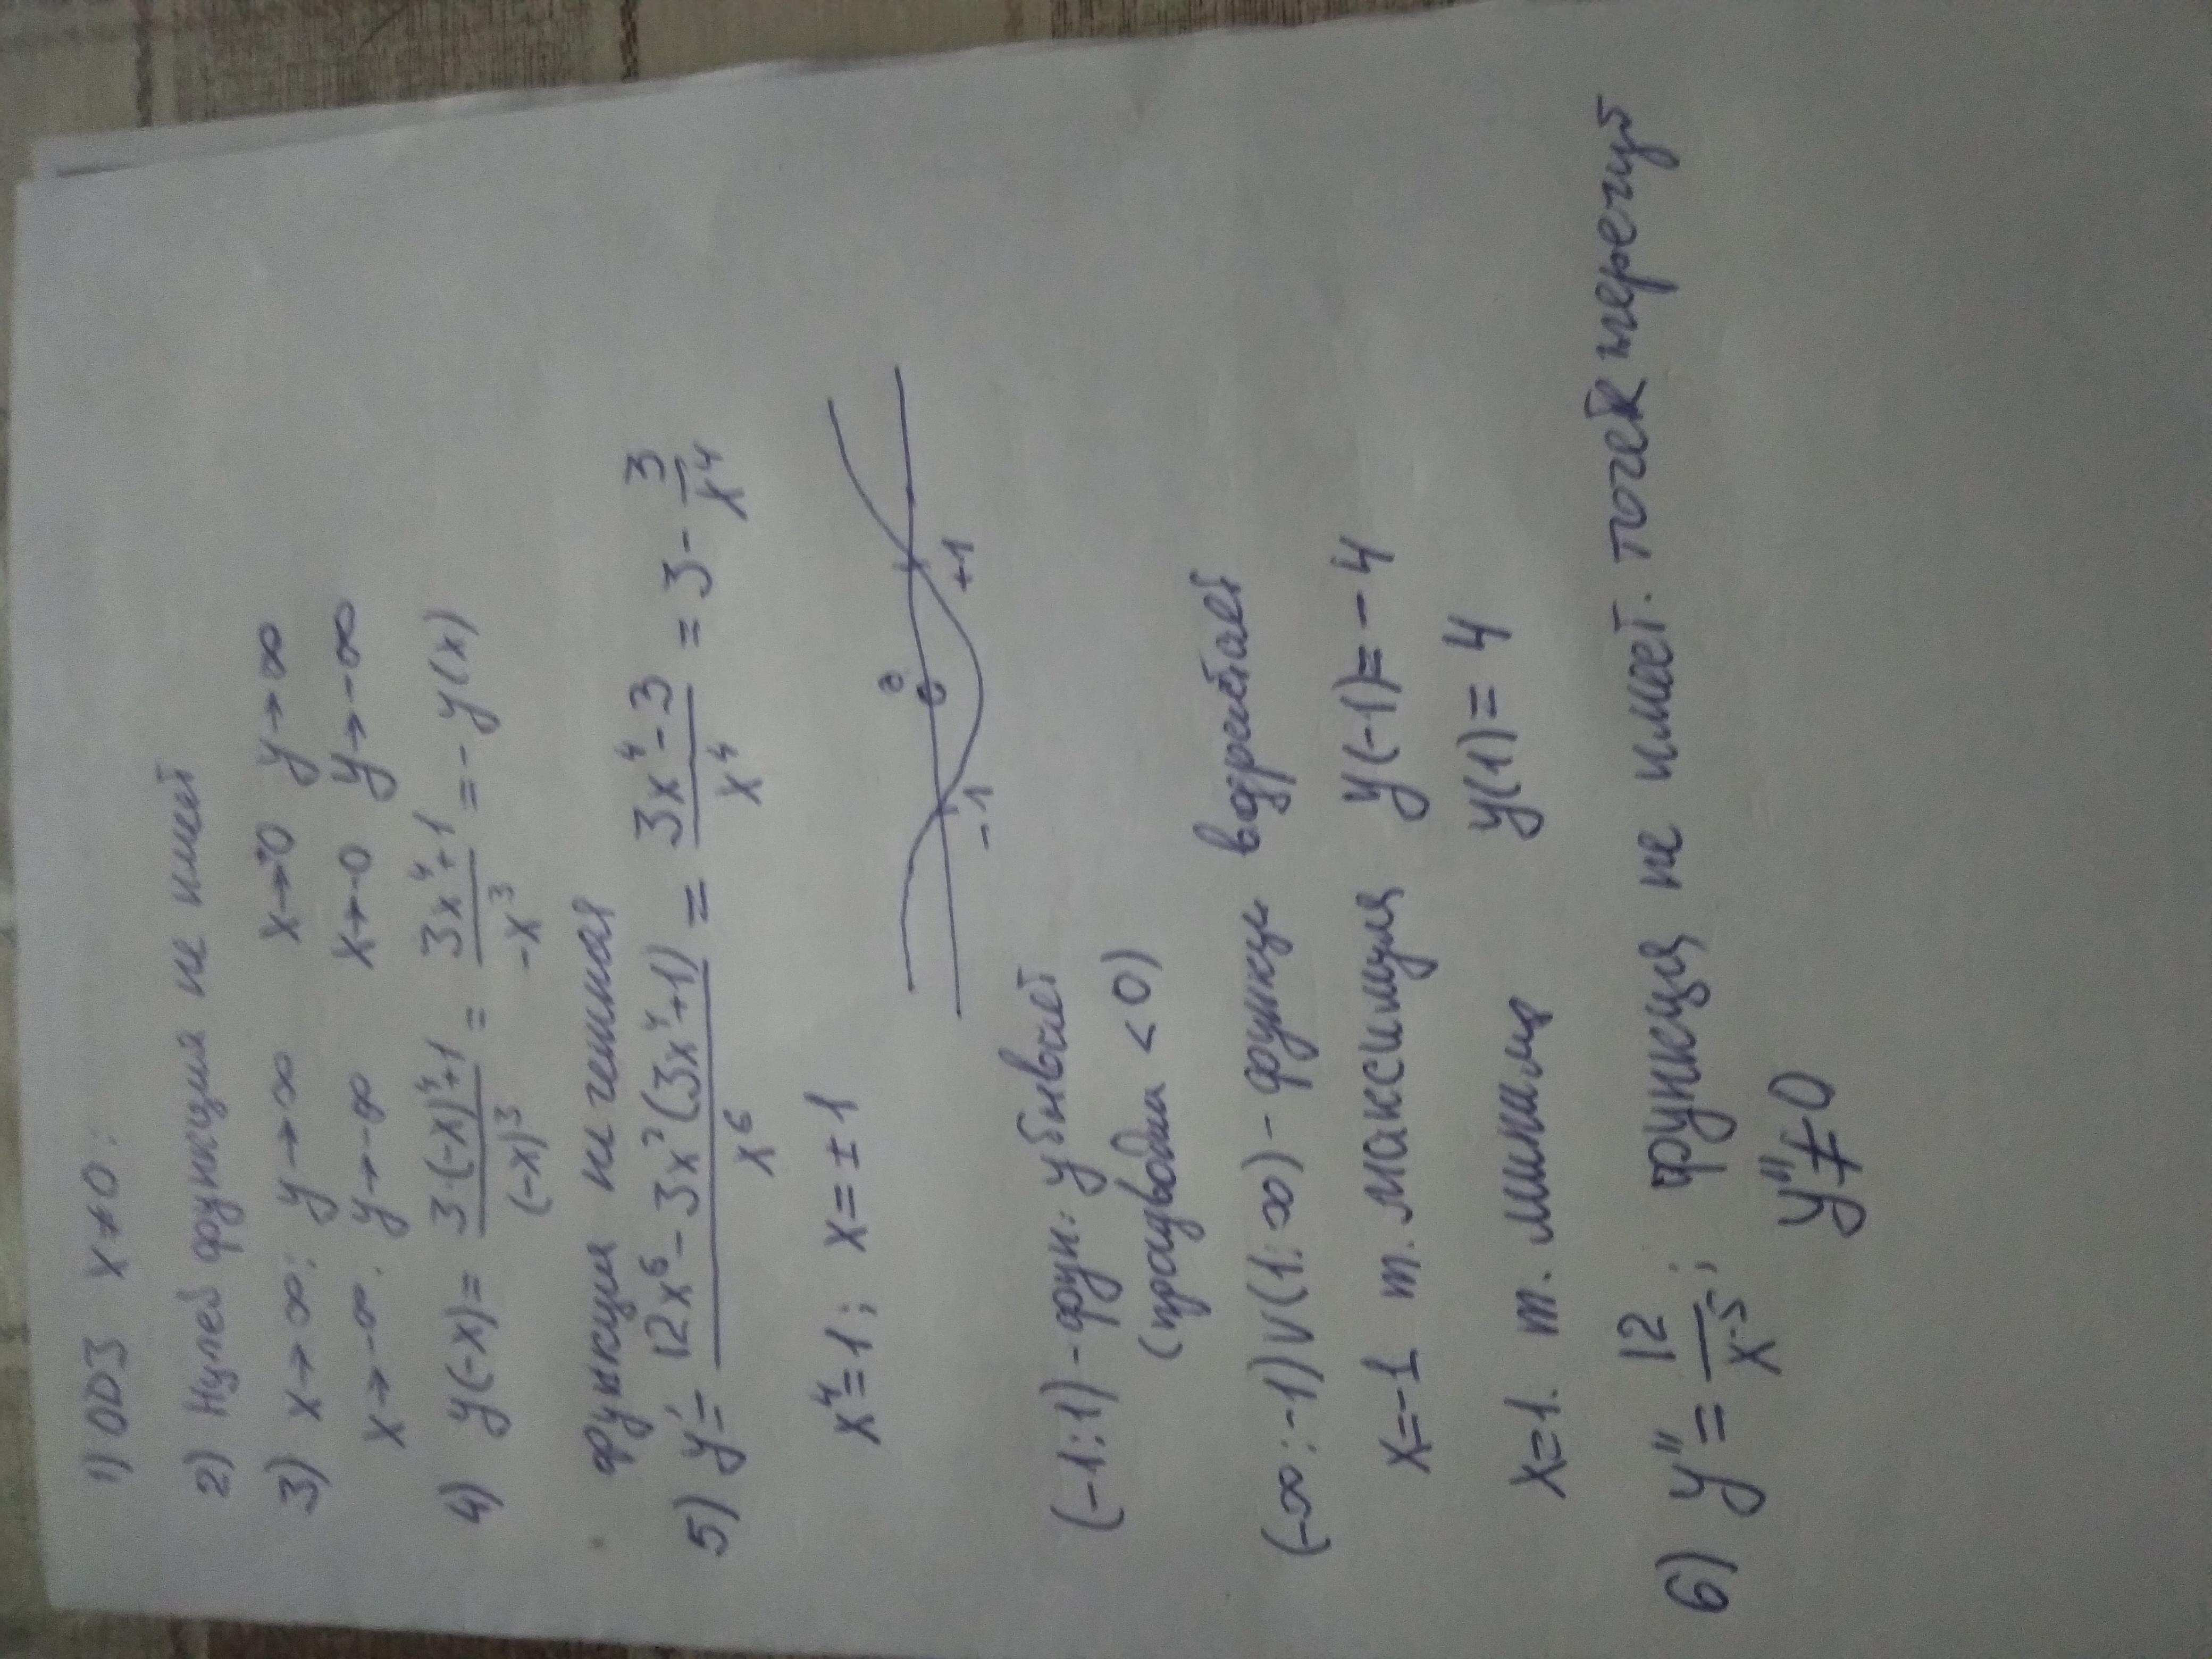 1) ОDЗ x≠0:
2) Нулей функция не имеет
3) x→∞: y→∞ x→0 y→∞
x→-∞: y→-∞ x→-0 y→-∞
4) y(-x)= 3·(-x)⁴+1/(-x)³ = 3x⁴+1/-x³ =-y(x)
функция нечетная
5) y'= 12x⁶-3x²(3x⁴+1)/x⁶ = 3x⁴-3/x⁴ = 3-3/x⁴
x⁴=1; x=±1
-1 0 +1
(-1:1)-функ: убывает
(<0)
(-∞:-1)∨(1:∞)-функци возрастает
x=-1 т. максимуля y(-1)=-4
x=1. т. миним y(1)=4
6) y''=12/x⁻⁵; функция не имеет. точек
y''≠0